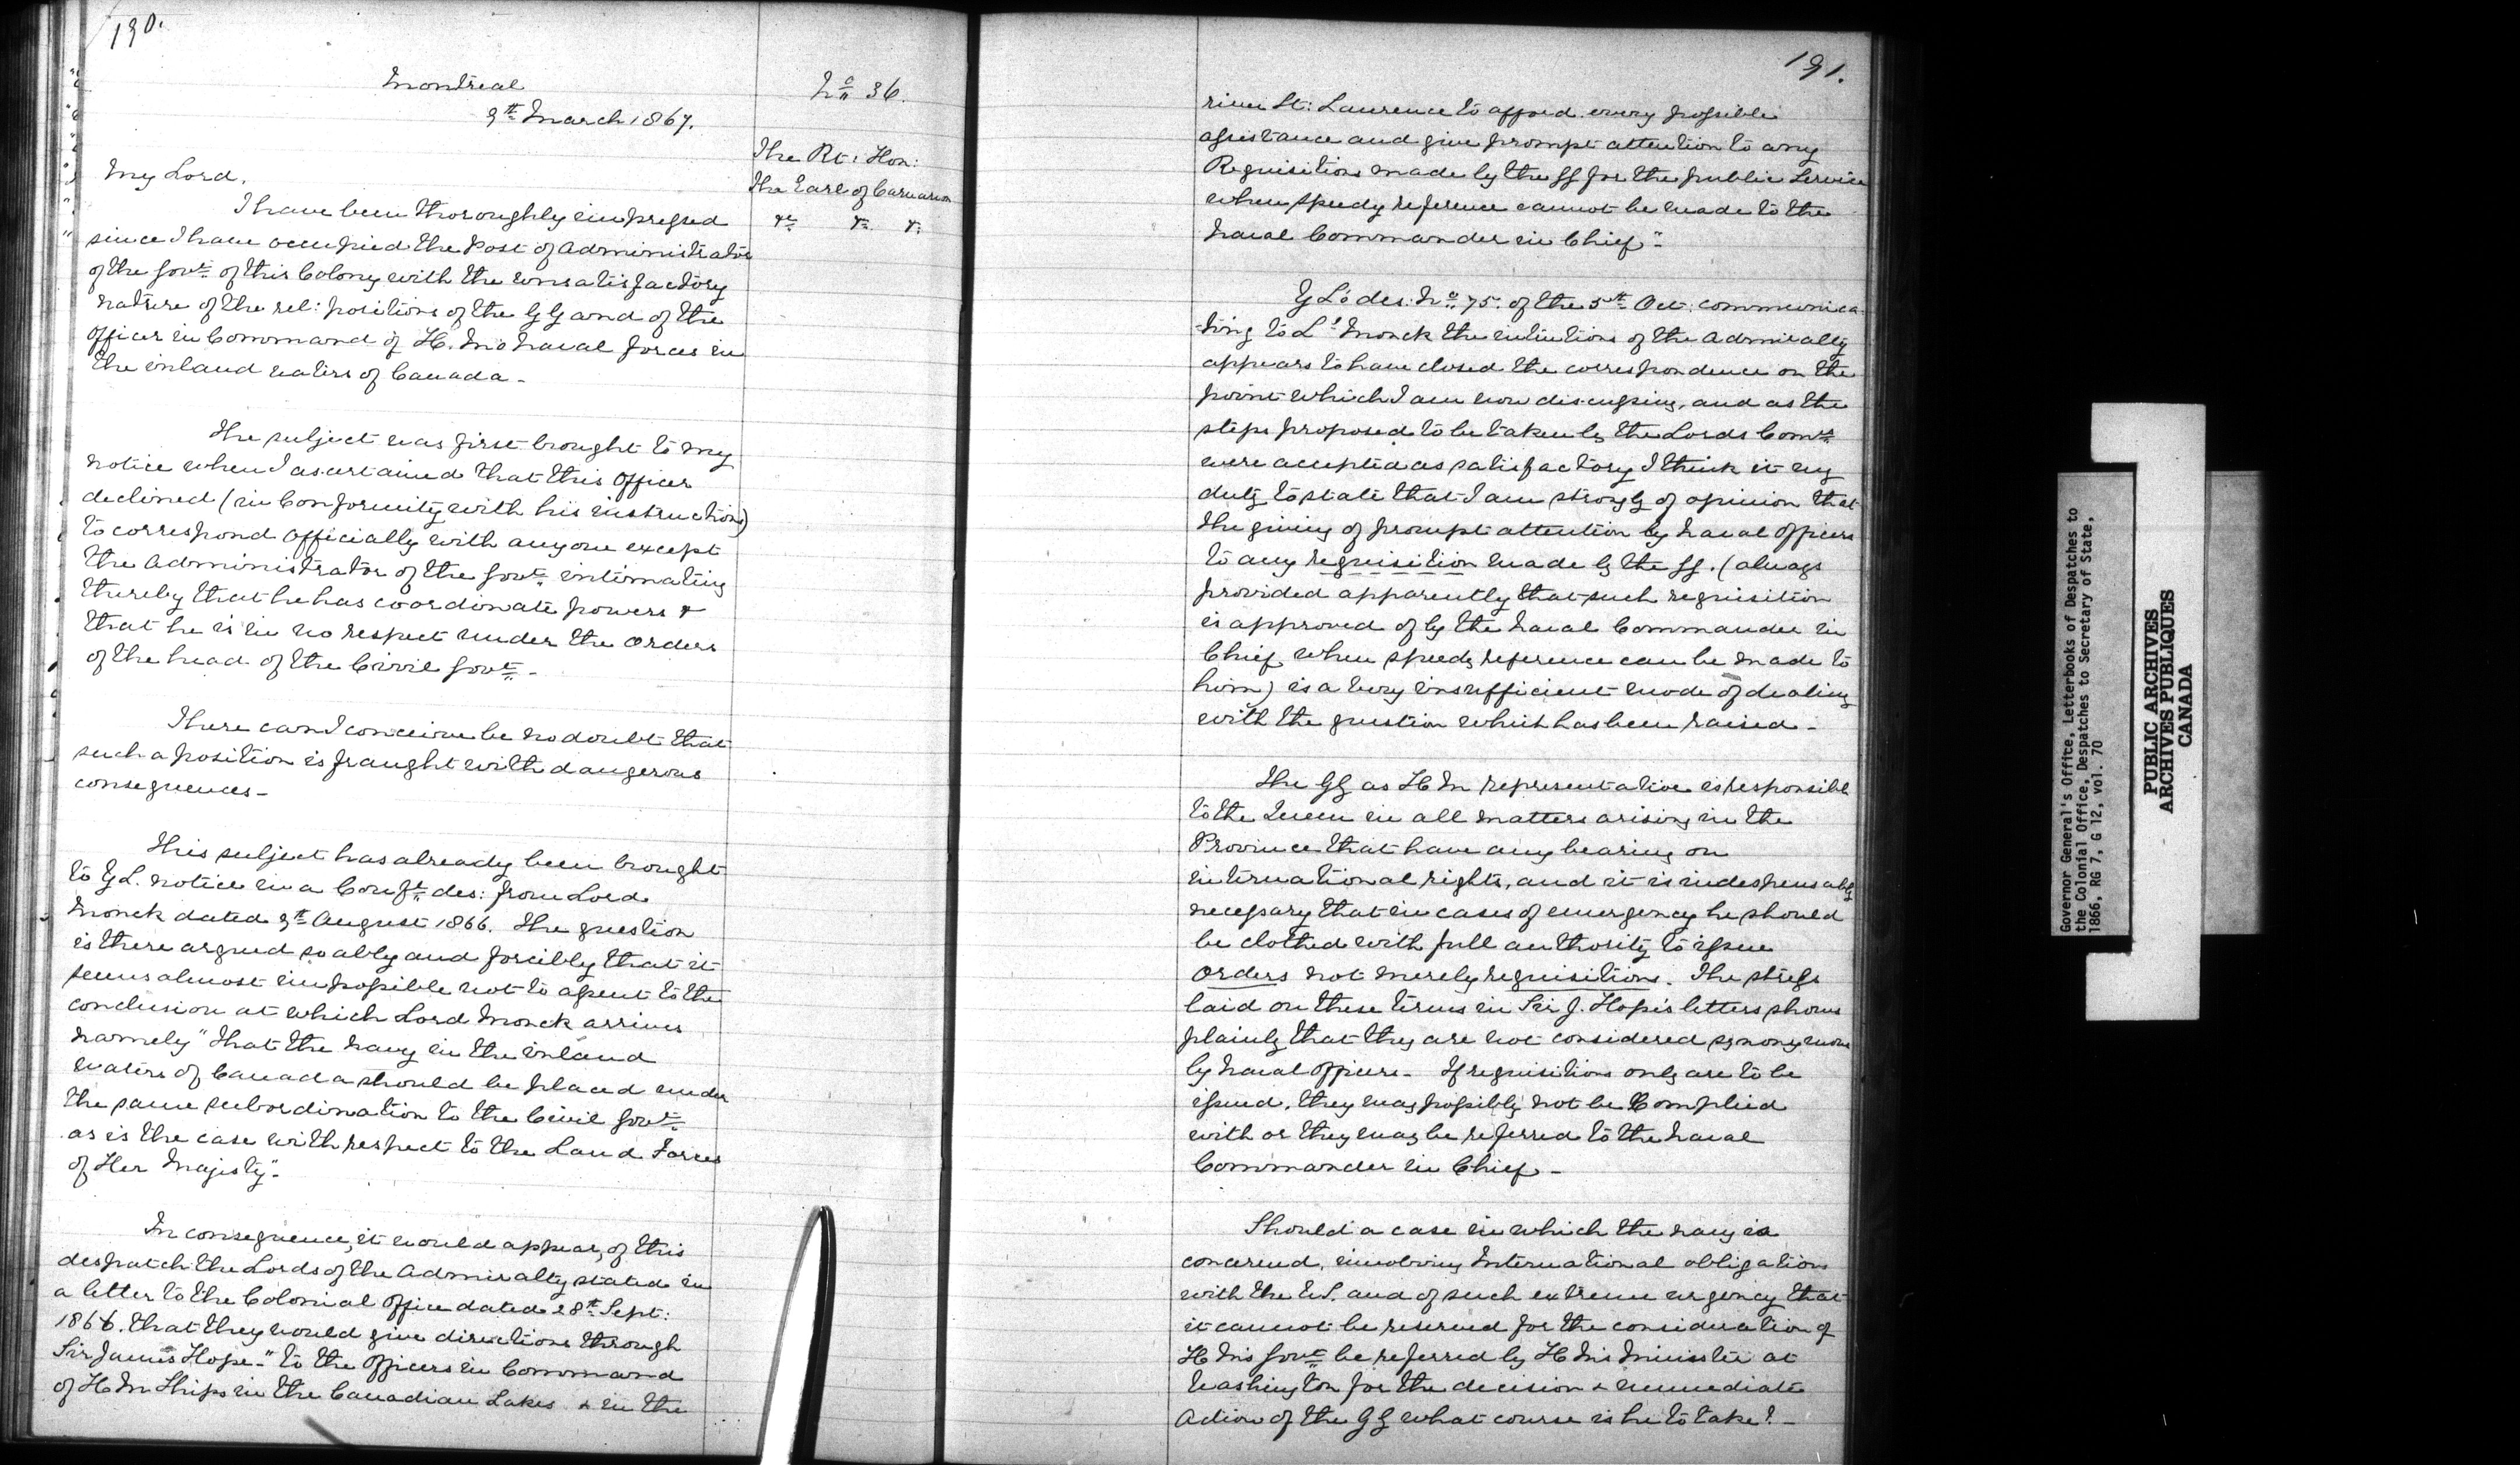 190.
Montreal
9th March 1867.
No 36.
The Rt: Hon:
The Earl of Carnarvon
&c &c &c
My Lord,
I have been thoroughly impressed
since I have occupied the Post of Administrator
of the Govt of this Colony with the unsatisfactory
nature of the rel: positions of the GG and of the
Officer in Command of H. M's Naval forces in
the inland waters of Canada -
The subject was first brought to my
notice when I ascertained that this Officer
declined (in Conformity with his instructions)
to correspond Officially with anyone except
the Administrator of the Govt intimating
thereby that he has coordinate powers &
that he is in no respect under the Orders
of the head of the Civil Govt -
There can I conceive be no doubt that
such a position is fraught with dangerous
consequences -
This subject has already been brought
to YL. notice in a Confl des: from Lord
Monck dated 9th August 1866. The question
is there argued so ably and forcibly that it
seems almost impossible not to assent to the
conclusion at which Lord Monck arrives
namely "That the Navy in the inland
waters of Canada should be placed under
the same subordination to the Civil Govt
as is the case with respect to the Land Forces
of Her Majesty"-
In consequence, it would appear, of this
despatch the Lords of the Admiralty stated in
a letter to the Colonial Office dated 28th Sept:
1866. that they would give directions through
Sir James Hope - "to the Officers in Command
of H M Ships in the Canadian Lakes & in the
191.
river St: Laurence to afford every possible
assistance and give prompt attention to any
Requisitions made by the GG for the public Service
when speedy reference cannot be made to the
Naval Commander in Chief"-
Y L's des: No 75. of the 5th Oct: communica-
-ting to Ld Monck the intentions of the Admiralty
appears to have closed the correspondence on the
point which I am now discussing, and as the
steps proposed to be taken by the Lords Comrs
were accepted as satisfactory I think it my
duty to state that I am strongly of opinion that
the giving of prompt attention by Naval Officers
to any requisition made by the GG. (always
provided apparently that such requisition
is approved of by the Naval Commander in
Chief, when speedy reference can be made to
him) is a very insufficient mode of dealing
with the question which has been raised -
The GG as H M representative is responsible
to the Queen in all matters arising in the
Province that have any bearing on
international rights, and it is indespensably
necessary that in cases of emergency he should
be clothed with full authority to issue
Orders not merely requisitions. The stress
laid on these terms in Sir J. Hope's letters shows
plainly that they are not considered synonymous
by Naval Officers - If requisitions only are to be
issued, they may possibly not be Complied
with or they may be referred to the Naval
Commander in Chief -
Should a case in which the Navy is
concerned, involving International obligations
with the U.S. and of such extreme urgency that
it cannot be reserved for the consideration of
H M's Govt be referred by H M's Minister at
Washington for the decision & immediate
Action of the GG what course is he to take? -
Governor General's Office, Letterbooks of Despatches to
the Colonial Office, Despatches to Secretary of State,
1866, RG 7, G 12, vol. 70
PUBLIC ARCHIVES
ARCHIVES PUBLIQUES
CANADA